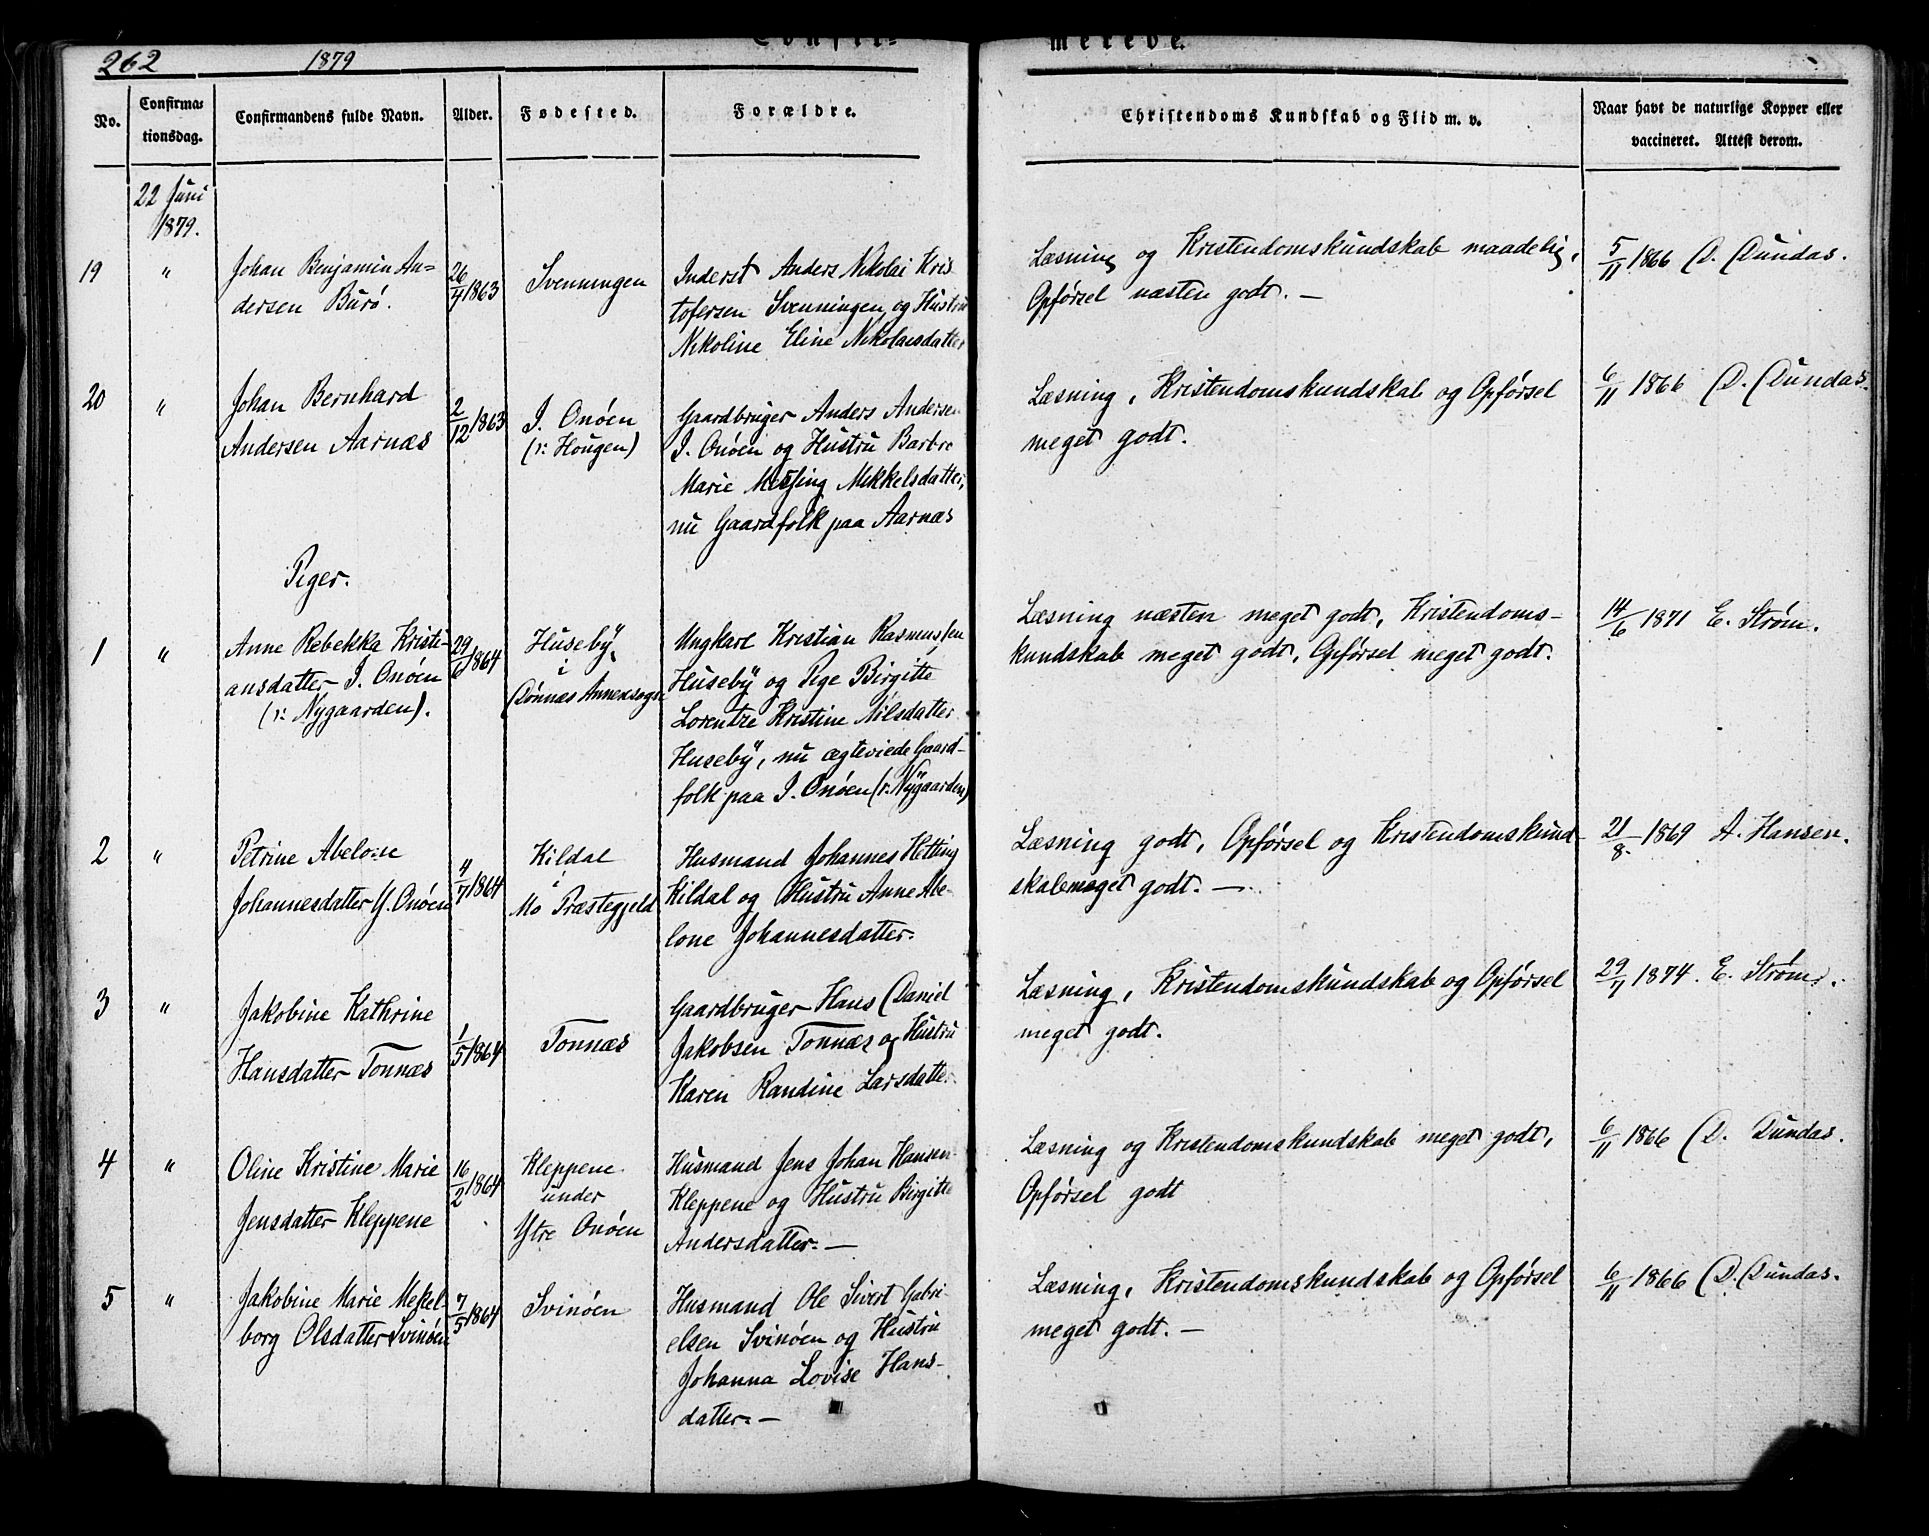 262 1879 Confir- merede.
No. Confirma- tionsdag. Confirmandens fulde Navn. Alder. Fødested. Forældre. Christendoms Kundskab og Flid m. v. Naar havt de naturlige Kopper eller vaccineret. Attest derom.
22 Juni
1879.
19 " Johan Benjamin An-
dersen Burø.
26/4 1863
Svenningen
Inderst Anders Nikolai Kris
tofersen Svenningen og Hustru
Nikoline Eline Nikolaisdatter
Læsning og Kristendomskundskab maadelig,
Opførsel næsten godt. —
5/11 1866 D. Dundas.
20 " Johan Bernhard
Andersen Aarnæs
2/12 1863
I. Onøen
(v: Hougen)
Gaardbruger Anders Andersen
I. Onøen og Hustru Barbre
Marie Mikkelsdatter,
nu Gaardfolk paa Aarnæs
Læsning, Kristendomskundskab og Opførsel
meget godt.
6/11 1866 D. Dundas.
Piger.
1 " Anne Rebekka Kristi-
ansdatter I. Onøen
(v: Nygaarden).
29/ 1864
Huseby
i
Dønnæs Annexsogn
Ungkarl Kristian Rasmussen
Huseby og Pige Birgitte
Lorentze Kristine Nilsdatter
Huseby, nu ægteviede Gaard-
folk paa I. Onøen (v: Nygaarden)
Læsning næsten meget godt, Kristendoms-
kundskab meget godt, Opførsel meget godt.
14/6 1871 E. Strøm.
2 " Petrine Abelone
Johannesdatter Y. Onøen
4/7 1864
Kildal
i
Mo Præstegjeld
Husmand Johannes Hetting
Kildal og Hustru Anne Abe-
lone Johannesdatter.
Læsning godt, Opførsel og Kristendomskund-
skab meget godt. —
21/8 1869 A. Hansen.
3 " Jakobine Kathrine
Hansdatter Tonnæs
1/5 1864
Tonnæs
Gaardbruger Hans Daniel
Jakobsen Tonnæs og Hustru
Karen Randine Larsdatter
Læsning, Kristendomskundskab og Opførsel
meget godt.
29/7 1874. E. Strøm.
4 " Oline Kristine Marie
Jensdatter Kleppene
16/2 1864
Kleppene
under
Ytre Onøen
Husmand Jens Johan Hansen
Kleppene og Hustru Birgitte
Andersdatter. —
Læsning og Kristendomskundskab meget godt,
Opførsel godt
6/11 1866 D. Dundas.
5 " Jakobine Marie Mekel-
borg Olsdatter Svinøen
7/5 1864
Svinøen
Husmand Ole Sivert Gabri-
elsen Svinøen og Hustru
Johanna Lovise Hans-
datter. —
Læsning, Kristendomskundskab og Opførsel
meget godt. —
6/11 1866 D. Dundas.